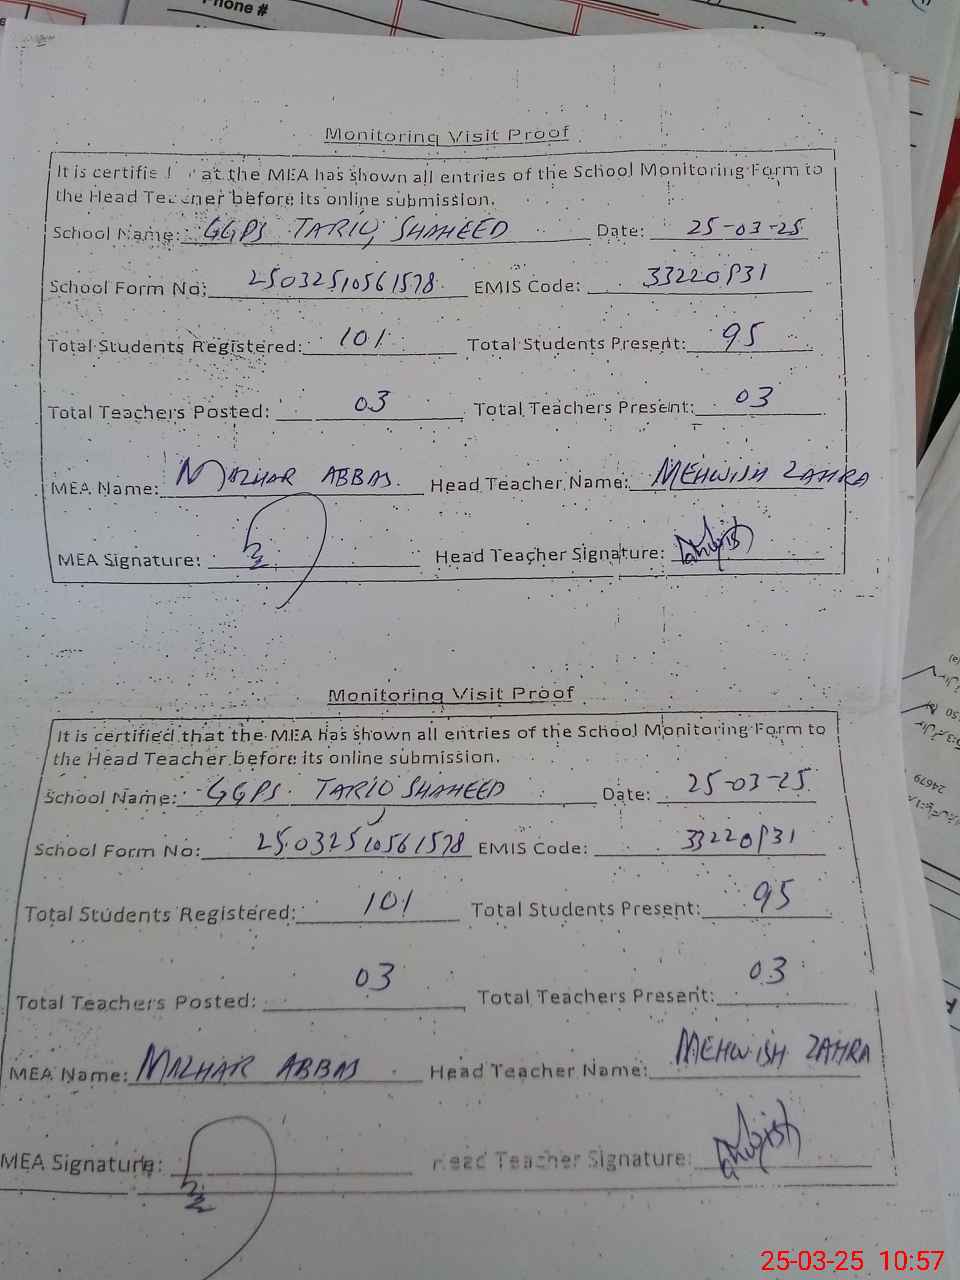 Phone #
Monitoring Visit Proof
It is certifie at the MEA has shown all entries of the School Monitoring Form to
the Head Teacher before its online submission.
School Name: GGPS TARIQ SHAHEED Date: 25-03-25
School Form No: 25032510561578 EMIS Code: 33220831
Total Students Registered: 101 Total Students Present: 95
Total Teachers Posted: 03 Total Teachers Present: 03
MEA Name: MAZHAR ABBAS Head Teacher Name: MEHWISH ZAHRA
MEA Signature: Head Teacher Signature:
Monitoring Visit Proof
It is certified that the MEA has shown all entries of the School Monitoring Form to
the Head Teacher before its online submission.
School Name: GGPS TARIQ SHAHEED Date: 25-03-25
School Form No: 25032510561578 EMIS Code: 33220831
Total Students Registered: 101 Total Students Present: 95
Total Teachers Posted: 03 Total Teachers Present: 03
MEA Name: MAZHAR ABBAS Head Teacher Name: MEHWISH ZAHRA
MEA Signature: Head Teacher Signature:
24679
25-03-25 10:57